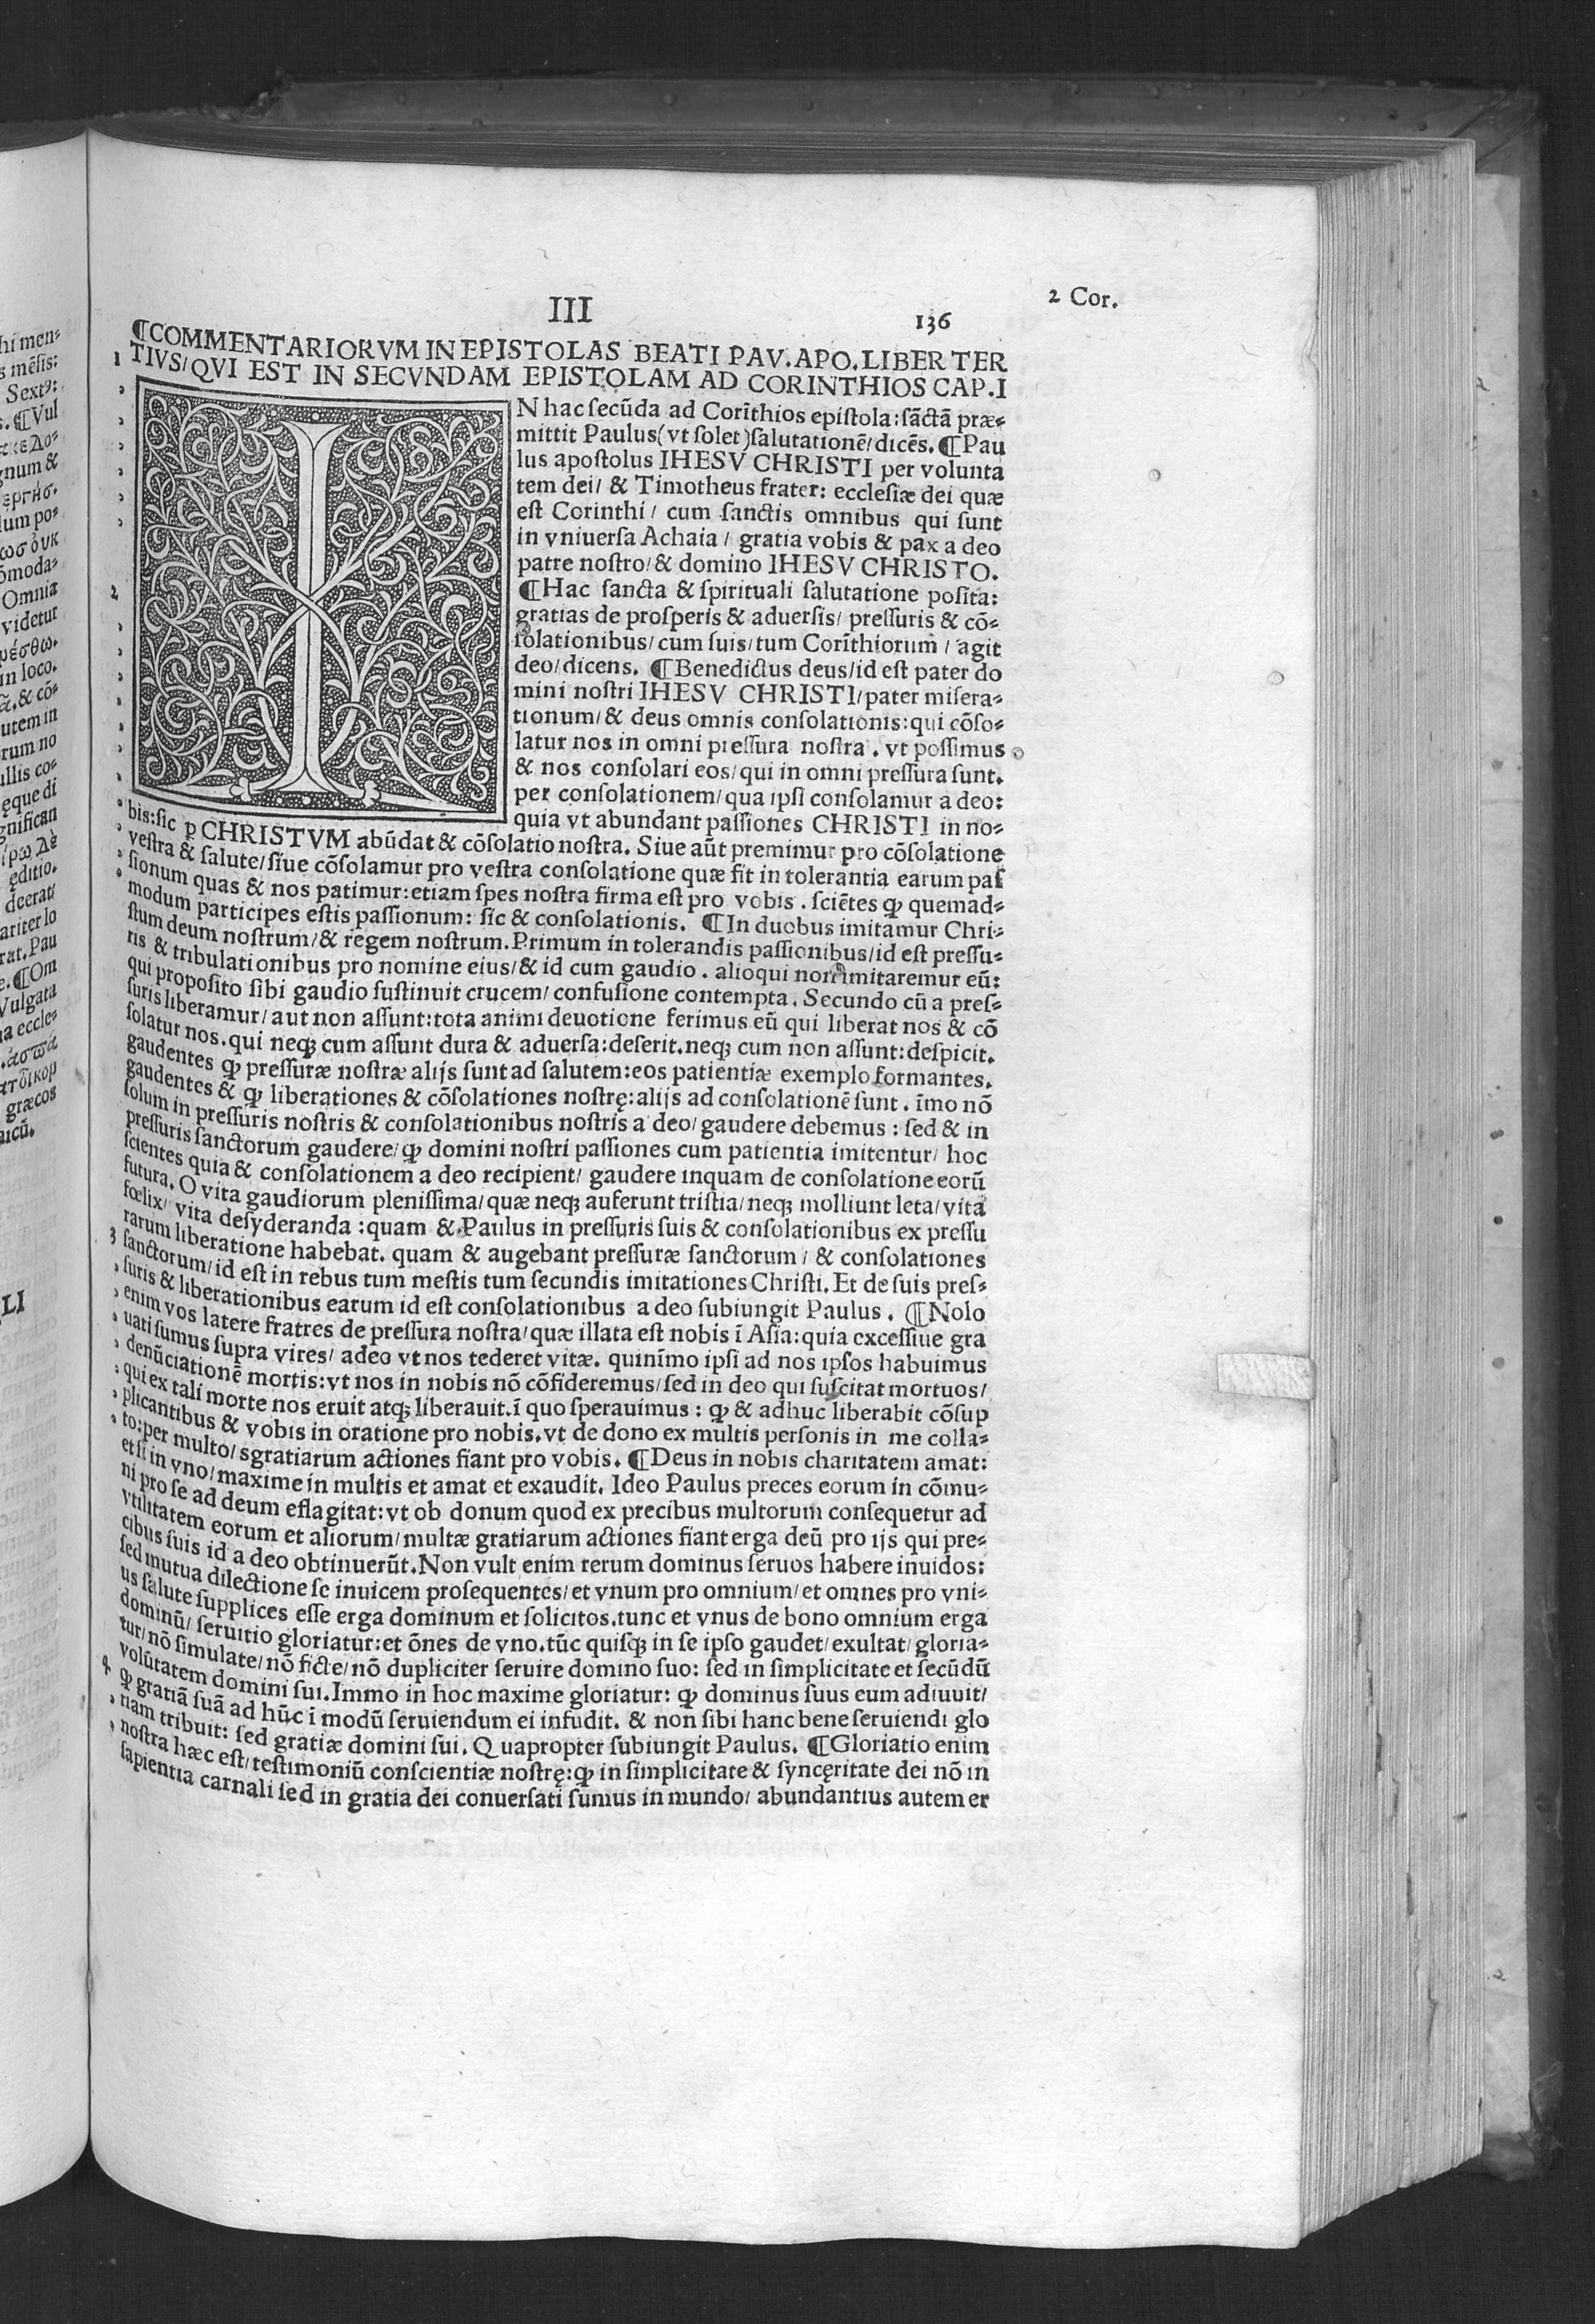 III
136
2 Cor.
¶COMMENTARIORVM IN EPISTOLAS BEATI PAV. APO. LIBER TER
1 TIVS/QVI EST IN SECVNDAM EPISTOLAM AD CORINTHIOS CAP.I
IN hac secūda ad Corīthios epistola:sāctā præ-
mittit Paulus(vt solet)salutationē/dicēs. ¶Pau
lus apostolus IHESV CHRISTI per volunta
tem dei/ & Timotheus frater: ecclesiæ dei quæ
est Corinthi/ cum sanctis omnibus qui sunt
in vniuersa Achaia/ gratia vobis & pax a deo
patre nostro/& domino IHESV CHRISTO.
2 ¶Hac sancta & spirituali salutatione posita:
gratias de prosperis & aduersis/ pressuris & cō-
solationibus/cum suis/tum Corīthiorum/ agit
deo/dicens. ¶Benedictus deus/id est pater do
mini nostri IHESV CHRISTI/pater misera-
tionum/& deus omnis consolationis:qui cōso-
latur nos in omni pressura nostra. vt possimus
& nos consolari eos/qui in omni pressura sunt.
per consolationem/qua ipsi consolamur a deo:
quia vt abundant passiones CHRISTI in no-
bis:sic ꝑ CHRISTVM abūdat & cōsolatio nostra. Siue aūt premimur pro cōsolatione
vestra & salute/siue cōsolamur pro vestra consolatione quæ fit in tolerantia earum pas
sionum quas & nos patimur:etiam spes nostra firma est pro vobis. sciētes ꝙ quemad-
modum participes estis passionum: sic & consolationis. ¶In duobus imitamur Chri-
stum deum nostrum/& regem nostrum. Primum in tolerandis passionibus/id est pressu-
ris & tribulationibus pro nomine eius/& id cum gaudio. alioqui non imitaremur eū:
qui proposito sibi gaudio sustinuit crucem/ confusione contempta. Secundo cū a pres-
suris liberamur/ aut non assunt:tota animi deuotione ferimus eū qui liberat nos & cō
solatur nos. qui neqꝫ cum assunt dura & aduersa:deserit.neqꝫ cum non assunt:despicit.
gaudentes ꝙ pressuræ nostræ alijs sunt ad salutem:eos patientiæ exemplo formantes.
gaudentes & ꝙ liberationes & cōsolationes nostrę:alijs ad consolationē sunt. īmo nō
solum in pressuris nostris & consolationibus nostris a deo/ gaudere debemus: sed & in
pressuris sanctorum gaudere/ꝙ domini nostri passiones cum patientia imitentur/ hoc
scientes quia & consolationem a deo recipient/ gaudere inquam de consolatione eorū
futura. O vita gaudiorum plenissima/quæ neqꝫ auferunt tristia/neqꝫ molliunt leta/vita
fœlix/ vita desyderanda:quam & Paulus in pressuris suis & consolationibus ex pressu
rarum liberatione habebat. quam & augebant pressuræ sanctorum/ & consolationes
3 sanctorum/id est in rebus tum mestis tum secundis imitationes Christi. Et de suis pres-
suris & liberationibus earum id est consolationibus a deo subiungit Paulus. ¶Nolo
enim vos latere fratres de pressura nostra/quæ illata est nobis ī Asia:quia excessiue gra
uati sumus supra vires/ adeo vt nos tederet vitæ. quinīmo ipsi ad nos ipsos habuimus
denūciationē mortis:vt nos in nobis nō cōfideremus/sed in deo qui suscitat mortuos/
qui ex tali morte nos eruit atqꝫ liberauit.ī quo sperauimus: ꝙ & adhuc liberabit cōsup
plicantibus & vobis in oratione pro nobis.vt de dono ex multis personis in me colla-
to:per multo/sgratiarum actiones fiant pro vobis. ¶Deus in nobis charitatem amat:
et si in vno/maxime in multis et amat et exaudit. Ideo Paulus preces eorum in cōmu-
ni pro se ad deum eflagitat:vt ob donum quod ex precibus multorum consequetur ad
vtilitatem eorum et aliorum/multæ gratiarum actiones fiant erga deū pro ijs qui pre-
cibus suis id a deo obtinuerūt. Non vult enim rerum dominus seruos habere inuidos:
sed mutua dilectione se inuicem prosequentes/et vnum pro omnium/et omnes pro vni-
us salute supplices esse erga dominum et solicitos.tunc et vnus de bono omnium erga
dominū/ seruitio gloriatur:et ōnes de vno.tūc quisqꝫ in se ipso gaudet/exultat/gloria-
tur/nō simulate/nō ficte/nō dupliciter seruire domino suo: sed in simplicitate et secūdū
volūtatem domini sui. Immo in hoc maxime gloriatur: ꝙ dominus suus eum adiuuit/
4 ꝙ gratiā suā ad hūc ī modū seruiendum ei infudit. & non sibi hanc bene seruiendi glo
riam tribuit: sed gratiæ domini sui. Quapropter subiungit Paulus. ¶Gloriatio enim
nostra hæc est/testimoniū conscientiæ nostrę:ꝙ in simplicitate & syncęritate dei nō in
sapientia carnali sed in gratia dei conuersati sumus in mundo/ abundantius autem er